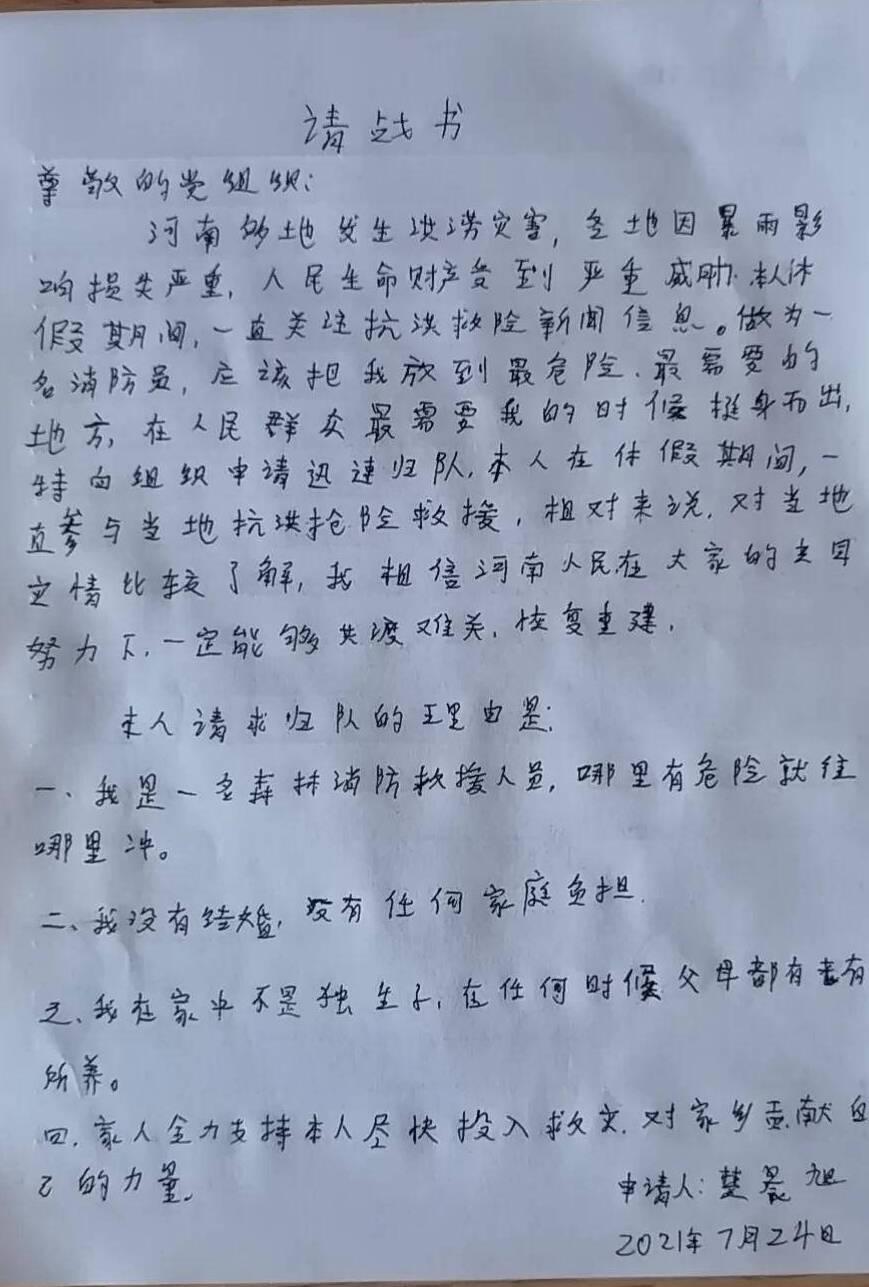 请战书
尊敬的党组织:
河南多地发生洪涝灾害,各地因暴雨影
响损失严重,人民生命财产受到严重威胁.本人休
假期间,一直关注抗洪救险新闻信息。做为一
名消防员,应该把我放到最危险、最需要的
地方,在人民群众最需要我的时候挺身而出,
特向组织申请迅速归队,本人在休假期间,一
直参与当地抗洪抢险救援,相对来说,对当地
灾情比较了解,我相信河南人民在大家的共同
努力下,一定能够共渡难关,恢复重建,
本人请求归队的理由是:
一、我是一名森林消防救援人员,哪里有危险就往
哪里冲。
二、我没有结婚,没有任何家庭负担.
三、我在家中不是独生子,在任何时候父母都有老有
所养。
四.家人全力支持本人尽快投入救灾.对家乡贡献自
己的力量.
申请人:楚晨旭
2021年7月24日